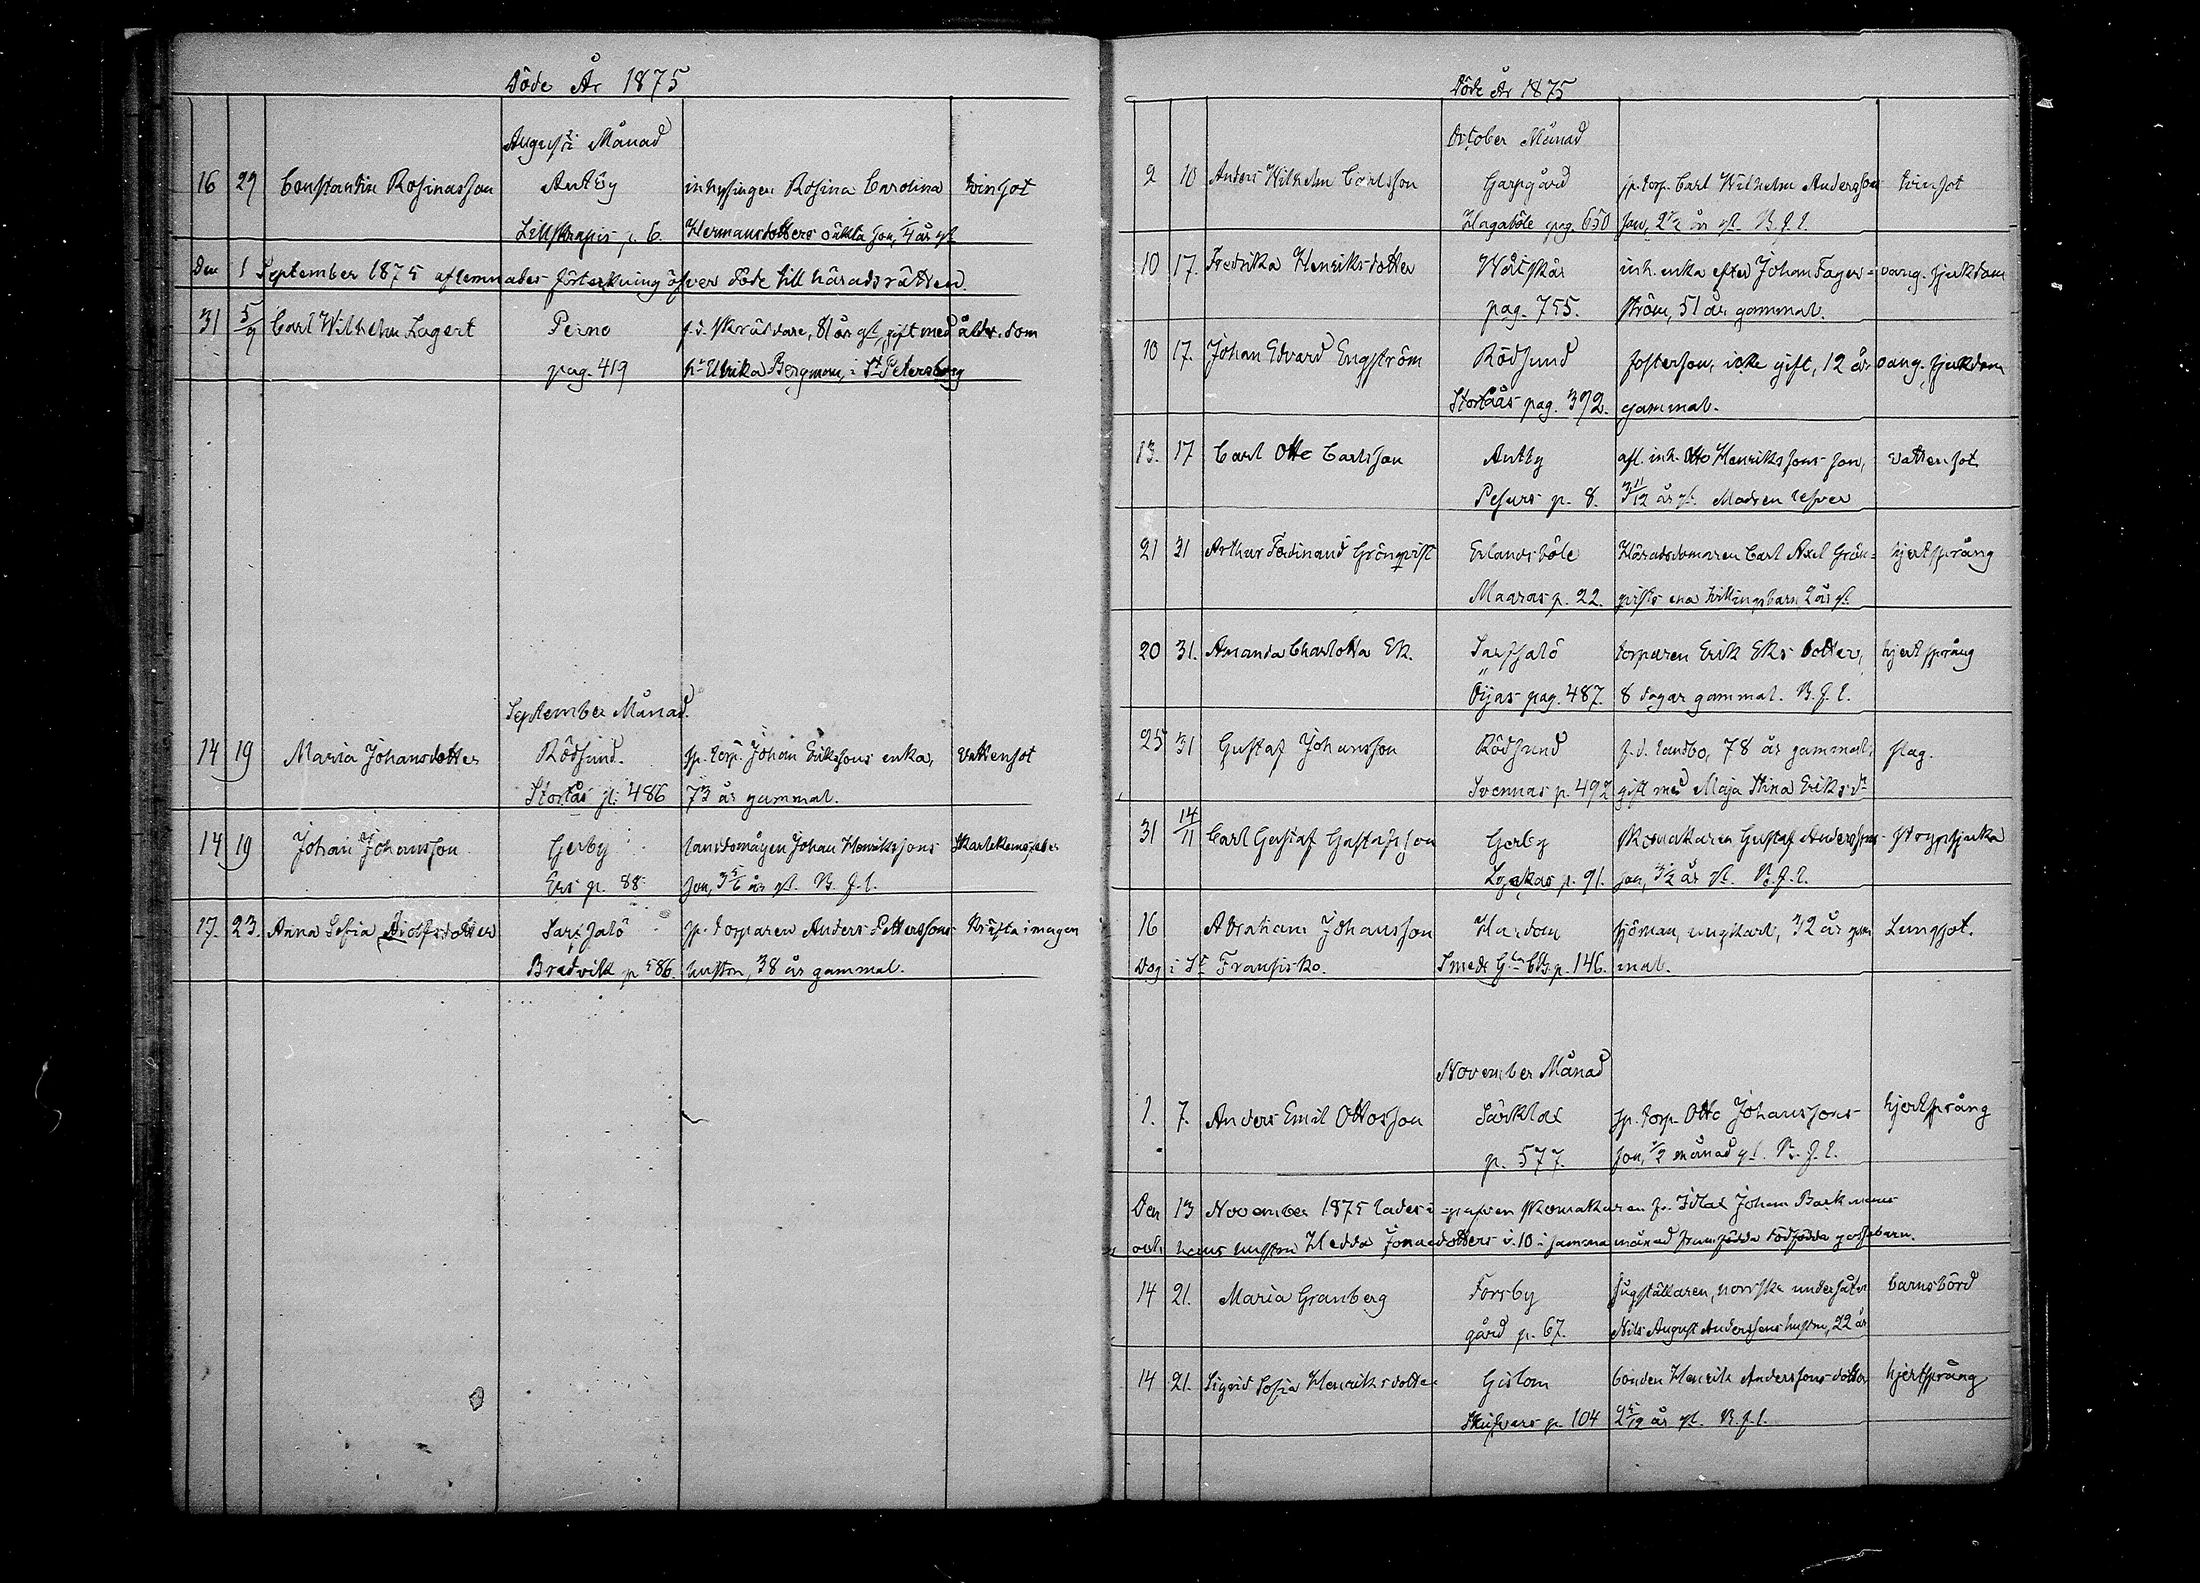 Döde År 1875
Augusti Månad
16 29 Constantin Rosinasson Antby inhysingen Rosina Carolina tvinsot
Lillskrapis p. 6. Hermansdotters oäkta son, 1/4 år gl
Den 1 September 1875 aflemnades förteckning öfver döde till häradsrätten.
31 5/9 Carl Wilhelm Lagert Perno f.d. skräddare, 81 år gl, gift med ålderdom
pag. 419 Ulrika Bergman, i St Petersburg
September Månad.
14 19 Maria Johansdotter Rödsund. sp. torp. Johan Erikssons enka, vattensot
Stortås p. 486 73 år gammal.
14 19 Johan Johansson Gerby landsmågen Johan Henrikssons skarlakansfeber
Ers p. 88 son, 3 5/6 år gl. B. f. l.
17. 23. Anna Sofia Adolfsdotter Sarfsalö sp. torparen Anders Petterssons kräfta i magen
Bredvik p 586. hustru, 38 år gammal.
Döde År 1875
October Månad
2 10 Anders Wilhelm Carlsson Garpgård sp. torp. Carl Wilhelm Anderssons tvinsot
Hagaböle pag. 650 son, 2 1/2 år gl. B. f. l.
10 17. Fredrika Henriksdotter Wåtskär inh. enka efter Johan Fager- oang. sjukdom
pag. 755. ström, 51 år gammal.
10 17. Johan Edvard Engström Rödsund fosterson, icke gift, 12 år oang. sjukdom
Stortås pag. 392. gammal.
13. 17 Carl Otto Carlsson Antby afl. inh. Otto Henrikssons son, vattensot
Pesurs p. 8. 3 11/12 år gl. Modren lefver
21 31 Arthur Ferdinand Grönqvist Erlandsböle Häradsdomaren Carl Axel Grön- hjertsprång
Maaras p. 22. qvists ena tvillingsbarn 2 år gl
20 31. Amanda Charlotta Ek. Sarfsalö torparen Erik Eks dotter, hjertsprång
Öijas pag. 487. 8 dagar gammal. B. f. l.
25 31 Gustaf Johansson Rödsund f.d. landbo, 78 år gammal, slag.
Svennas p. 492 gift med Maja Stina Eriksdr
31 14/11 Carl Gustaf Gustafsson Gerby skomakaren Gustaf Anderssons strypsjuka
p. 91. son, 3 1/2 år gl. B. f. l.
16 Abraham Johansson Hardom sjöman, ungkarl, 32 år gam Lungsot.
Dog i St Fransisko. Smeds p. 146. mal.
November Månad
1. 7. Anders Emil Ottosson Särklax sp. torp. Otto Johanssons hjertsprång
p. 577. son, 1/2 månad gl. B. f. l.
Den 13 November 1875 lades i grafven skomakaren fr. Johan Backmans
och hans hustru Hedda Jonaedotters d. 10 i samma månad framfödda dödfödda gossebarn.
14 21. Maria Granberg Forsby sågställaren, norrske undersåten barnsbörd
gård p. 67. Nils August Anderssons hustru, 22 år
14 21. Sigrid Sofia Henriksdotter Gislom bonden Henrik Anderssons dotter hjertsprång
p. 104 2 5/12 år gl. B. f. l.